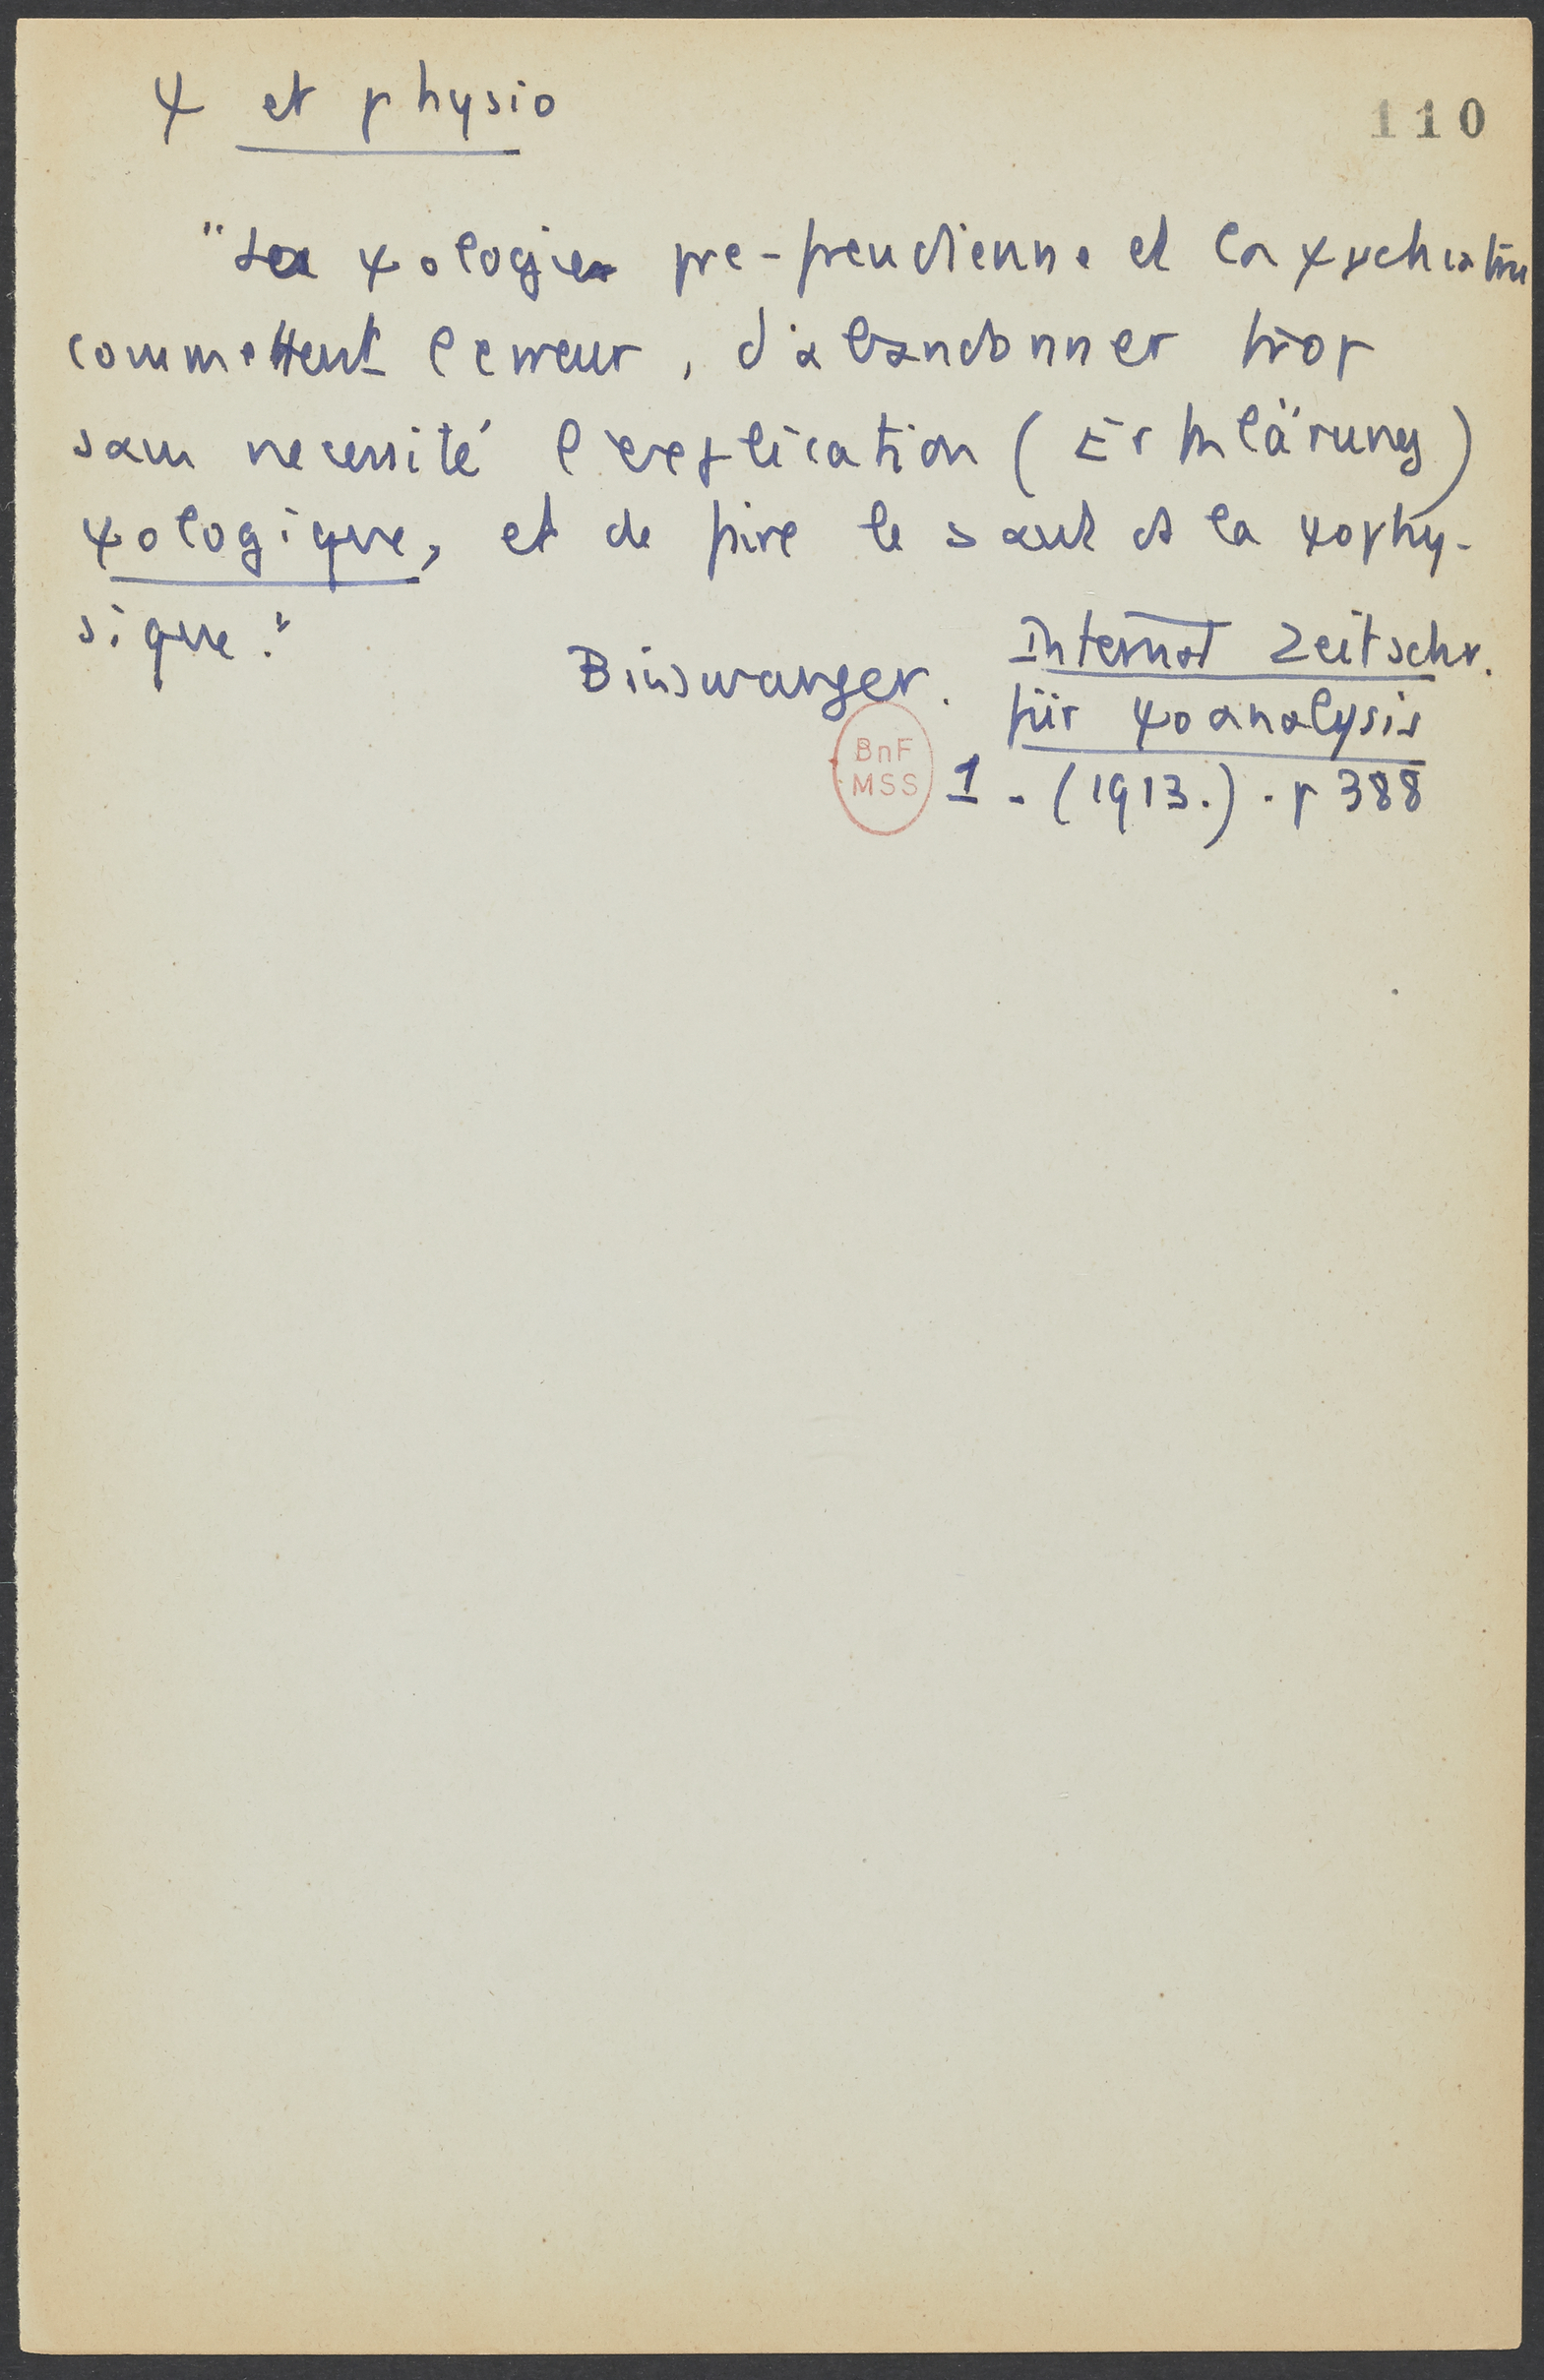 ψ et physio
110
"La ψologie pre-freudienne et la ψychiatrie
commettent l'erreur, d'abandonner trop
sans necessité l'explication (Erklärung)
ψologique, et de faire le saut ds la ψophy-
sique."
Binswanger. Internat Zeitschr.
für ψoanalysis
BnF
MSS
1 - (1913.) . p 388